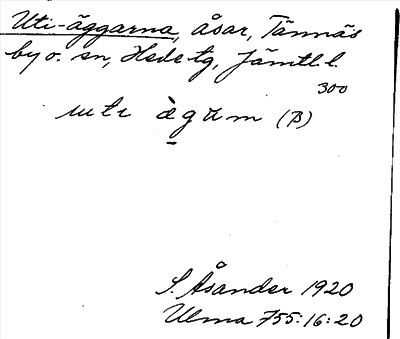 Uti-äggarna, åsar, Tännäs
by o. sn, Hede tg, Jämtl. l.
300
ute ègum (B)
S. Åsander 1920
Ulma 755:16:20